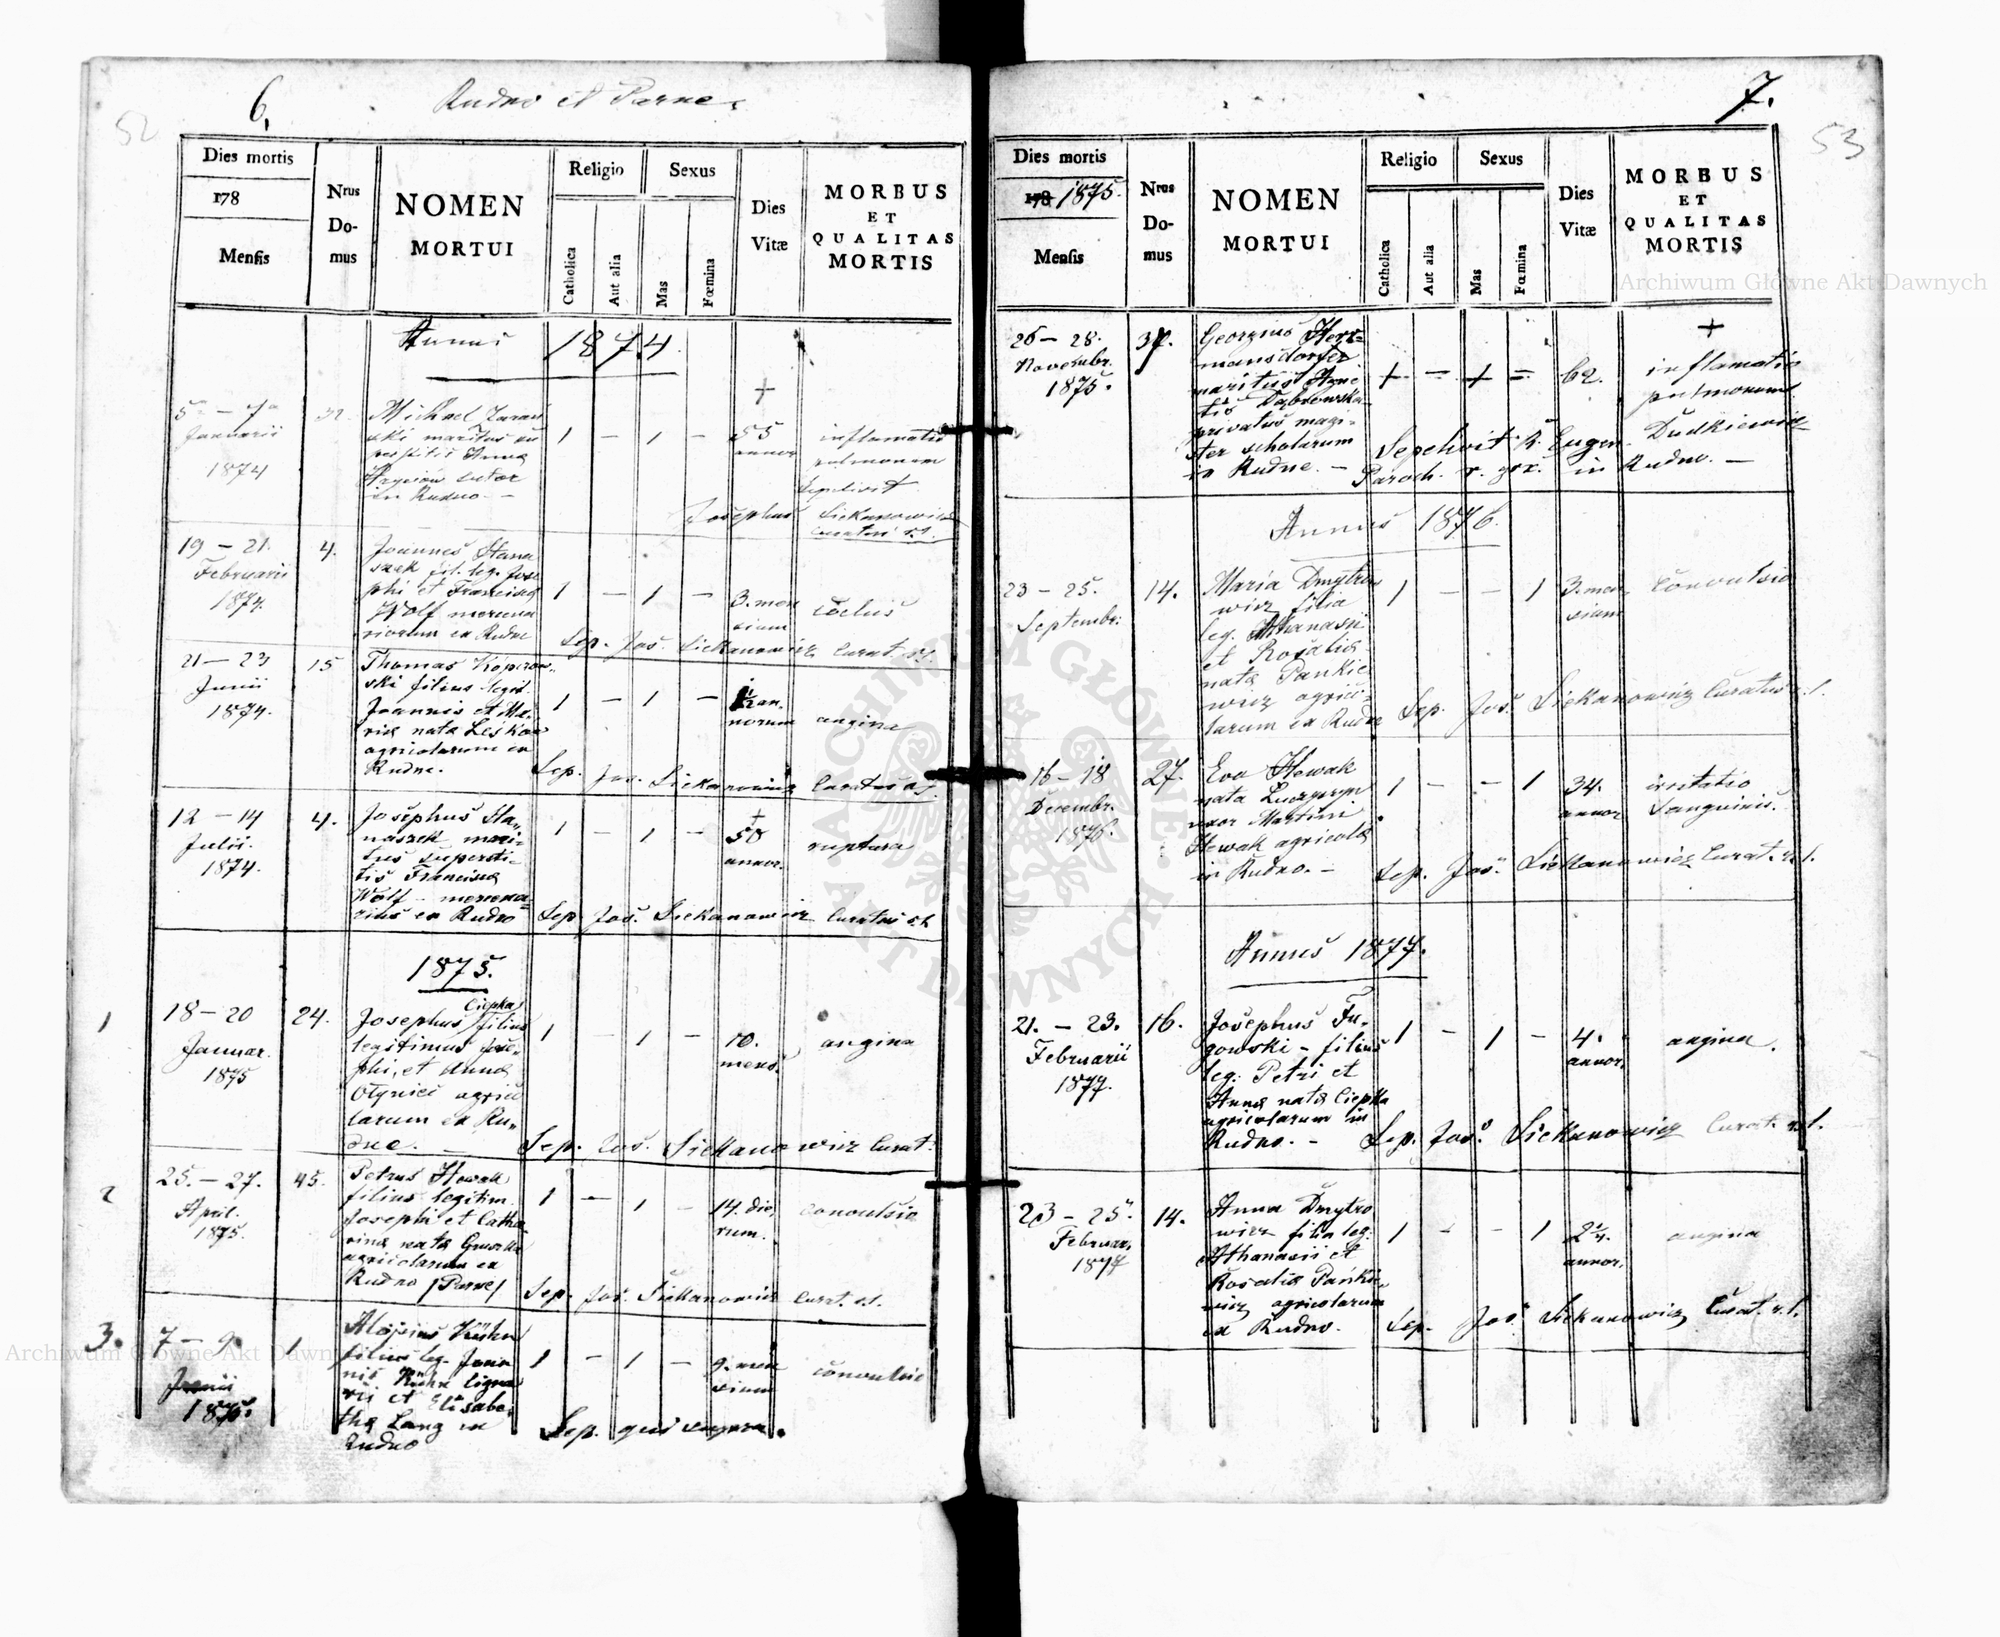 52
6.
Rudno et Parne.
Dies mortis
178
Mensis
Nrus
Do-
mus
NOMEN
MORTUI
Religio
Catholica
Aut alia
Sexus
Mas
Fœmina
Dies
Vitæ
MORBUS
ET
QUALITAS
MORTIS
Annus 1874.
5 — 7
Januarii
1874
32.
Michael
ski maritus su
perstitis Anna
sutor
in Rudno. —
1 — 1 —
+
55
annor
inflamatio
pulmonum
Sepelivit
Josephus Siekanowicz
Curatus r.l.
19 — 21.
Februarii
1874.
4.
Joannes Hana
szek fil. leg. Jose
phi et Francisca
Wolf mercena
riorum ex Rudno
1 — 1 —
3. men
sium
Sep. Jos. Siekanowicz Curat. r.l.
21 — 23
Junii
1874.
15
Thomas
ski filius legit.
Joannis et Ma-
ria nata
agricolarum ex
Rudno.
1 — 1 —
1/2 an.
norum
angina
Sep. Jos. Siekanowicz Curatus r.l.
12 — 14
Julii.
1874.
4.
Josephus Ha-
naszek mari-
tus supersti-
tis Francisca
Wolf mercena-
rius ex Rudno
1 — 1 —
+
58
annor.
ruptura
Sep. Jos. Siekanowicz Curatus r.l.
1875.
1
18 — 20
Januar.
1875
24.
Ciepka
Josephus filius
legitimus Jose-
phi, et Anna
agrico
larum ex Ru-
dno. —
1 — 1 —
10.
mens.
angina
Sep. Jos. Siekanowicz Curat.
2
25. — 27.
April.
1875.
45.
Petrus Howak
filius legitim.
Josephi et Catha
rina nata
agricolarum ex
Rudno /Parne/
1 — 1 —
14. die,
rum.
convulsio
Sep. Jos. Siekanowicz Curat. r.l.
3.
7 — 9.
Junii
1875.
1
Aloysius Kühn
filius leg. Joan
nis Kühn ligna
rii et Elisabe-
tha Lang ex
Rudno
1 — 1 —
9. men
sium
convulsio
Sep. qui supra.
7.
53
Dies mortis
178 1875.
Mensis
Nrus
Do-
mus
NOMEN
MORTUI
Religio
Catholica
Aut alia
Sexus
Mas
Fœmina
Dies
Vitæ
MORBUS
ET
QUALITAS
MORTIS
26 — 28.
Novembr.
1875.
37.
Georgius Herr=
mansdorfer
maritus Agne
tis Dąbrowska
privatus magi-
ster scholarum
in Rudno. —
+ — + =
62.
+
inflamatio
pulmonum.
Sepelivit R. Eugen. Dudkiewicz
Paroch. r. gr. in Rudno. —
Annus 1876.
23 — 25.
Septembr.
14.
Maria Dmytro
wicz filia
leg. Athanasii
et Rosalia
nata Pankie
wicz agrico
larum ex Rudno
1 — — 1
3. men
sium
Convulsio
Sep. Jos. Siekanowicz Curatus r.l.
16 — 18
Decembr.
1876.
27.
Eva Howak
nata
uxor Martini
Howak agricola
in Rudno. —
1 — — 1
34.
annor
irritatio
Sanguinis.
Sep. Jos. Siekanowicz Curat. r.l.
Annus 1877.
21. — 23.
Februarii
1877.
16.
Josephus Fu-
gowski — filius
leg. Petri et
Anna nata Ciepka
agricolarum in
Rudno. —
1 — 1 —
4.
annor.
angina.
Sep. Jos. Siekanowicz Curat. r.l.
23 — 25.
Februar.
1877
14.
Anna Dmytro
wicz filia leg.
Athanasii et
Rosalia Pankie
wicz agricolarum
ex Rudno.
1 — — 1
2 1/4.
annor.
angina
Sep. Jos. Siekanowicz Curat. r.l.
Archiwum Główne Akt Dawnych
Archiwum Główne Akt Dawnych
ARCHIWUM GŁÓWNE AKT DAWNYCH